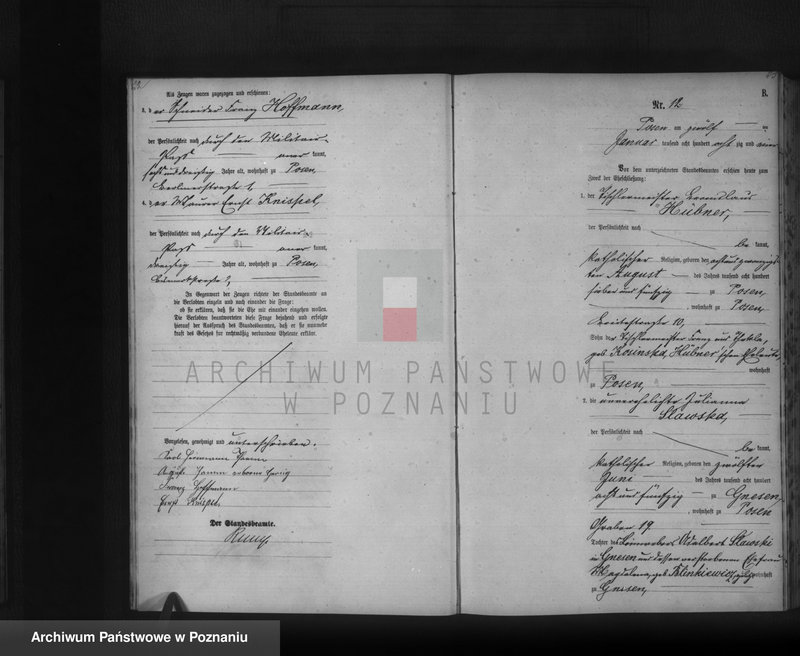 Als Zeugen waren zugezogen und erschienen:
1. der Schneider Franz Hoffmann,
der Persönlichkeit nach durch den Militair-
Paß anerkannt,
Jahre alt, wohnhaft zu Posen,
2. der Maurer Ernst Knispel,
der Persönlichkeit nach durch den Militair-
Paß anerkannt,
dreißig Jahre alt, wohnhaft zu Posen,
In Gegenwart der Zeugen richtete der Standesbeamte an
die Verlobten einzeln und nach einander die Frage:
ob sie erklären, daß sie die Ehe mit einander eingehen wollen.
Die Verlobten beantworteten diese Frage bejahend und erfolgte
hierauf der Ausspruch des Standesbeamten, daß er sie nunmehr
kraft des Gesetzes für rechtmäßig verbundene Eheleute erkläre.
Vorgelesen, genehmigt und unterschrieben:
Karl Hermann
geborene
Franz Hoffmann
Ernst Knispel.
Der Standesbeamte.
B.
Nr. 12
Posen am zwölf
Januar tausend acht hundert achtzig und
Vor dem unterzeichneten Standesbeamten erschien heute zum
Zweck der Eheschließung:
1. der Tischlermeister
Hübner,
der Persönlichkeit nach
bekannt,
katholischer Religion, geboren den acht und zwanzig-
sten August des Jahres tausend acht hundert
sieben und fünfzig zu Posen,
, wohnhaft zu Posen,
Breitestrasse 10,
Sohn der Tischlermeister Franz und
geb. Kosinska, Hübner'schen Eheleute,
wohnhaft
zu Posen,
2. die unverehelichte Julianna
Slawska,
der Persönlichkeit nach
bekannt,
katholischer Religion, geboren den zwölften
Juni des Jahres tausend acht hundert
acht und fünfzig zu Gnesen,
, wohnhaft zu Posen
Graben 19.
Tochter des Adalbert Slawski
in Gnesen und dessen verstorbenen Ehefrau
Magdalena, geb. Klinkiewicz, wohnhaft
zu Gnesen,
ARCHIWUM PAŃSTWOWE
W POZNANIU
Archiwum Państwowe w Poznaniu